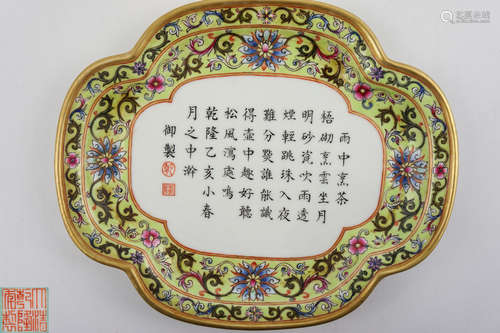 雨中烹茶
梧砌烹雲坐月
明砂瓷吹雨透
煙輕跳珠入夜
難分點誰能識
得壺中趣好聽
松風瀉處鳴
乾隆乙亥小春
月之中澣
御製
大清
乾隆
年製